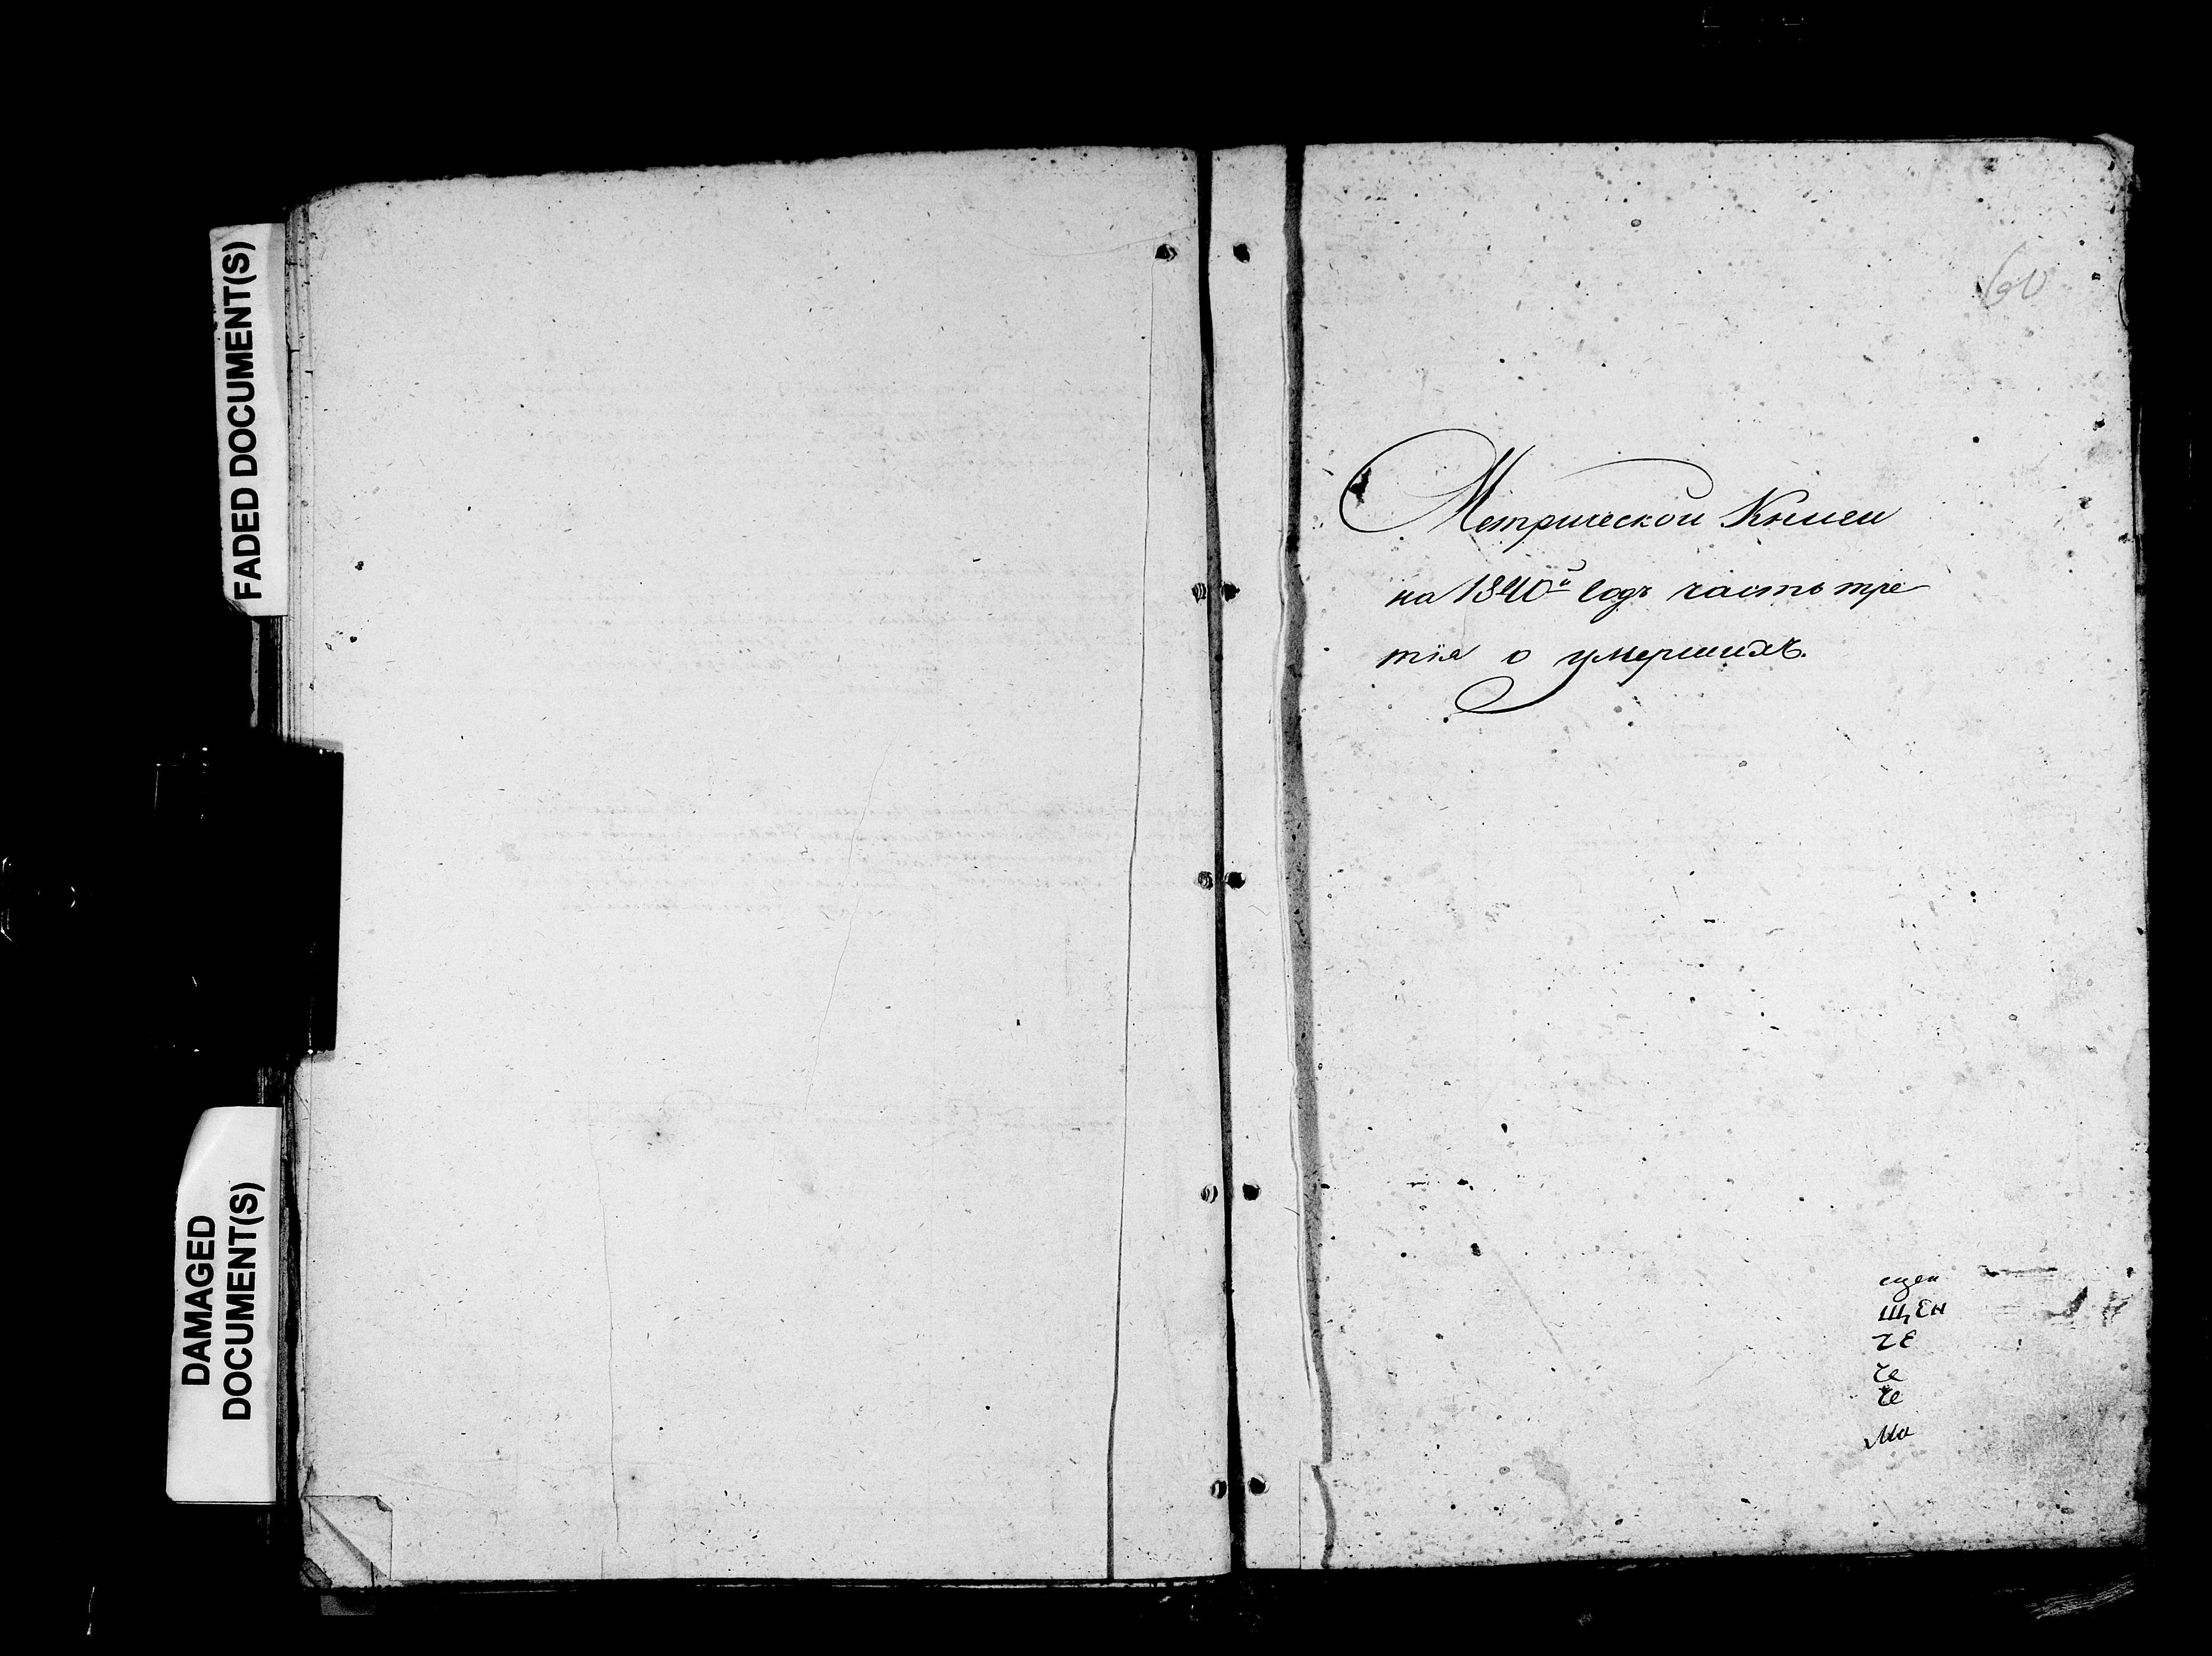 FADED DOCUMENT(S)
DAMAGED
DOCUMENT(S)
60
Метрической Книги
на 1840й годъ часть тре
тія о умершихъ.
сщен
щен
че
че
че
Мо